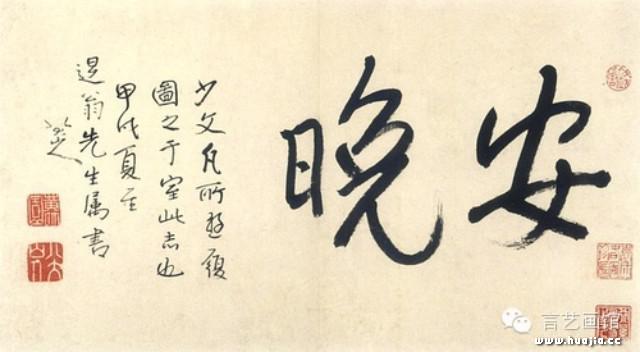 安晚
少文凡所遊履
圖之于室此志也
甲戌夏至
退翁先生属書
八大山人
言艺画馆
www.huajia.cc